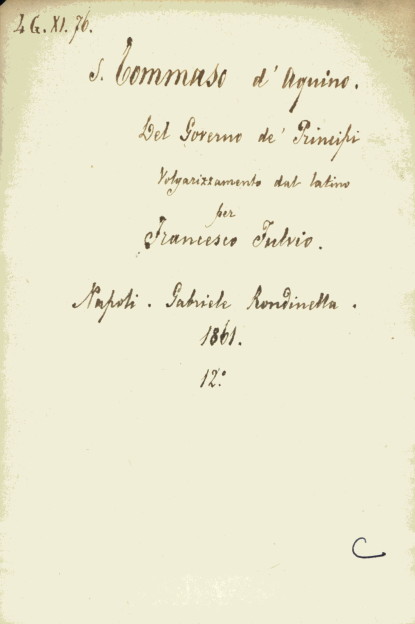 4 G. XI. 76.
S. Tommaso d' Aquino.
Del Governo de' Principi
Volgarizzamento dal latino
per
Francesco Fulvio.
Napoli. Gabriele Rondinella.
1861.
12º
C